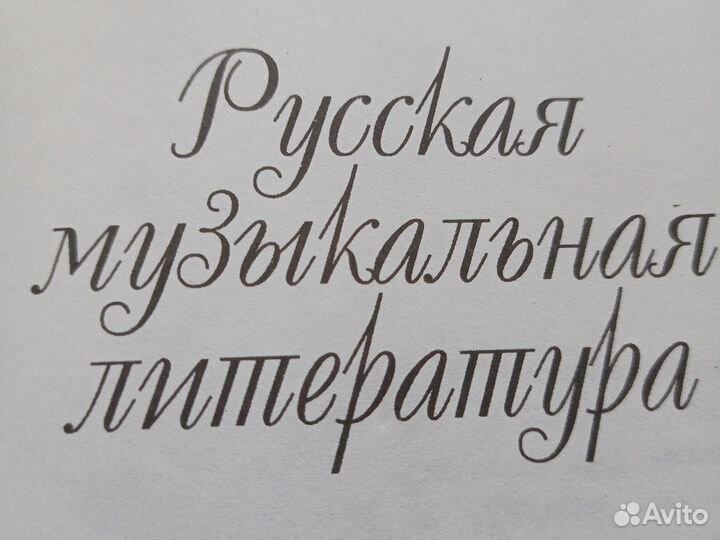 Русская
музыкальная
литература
Avito